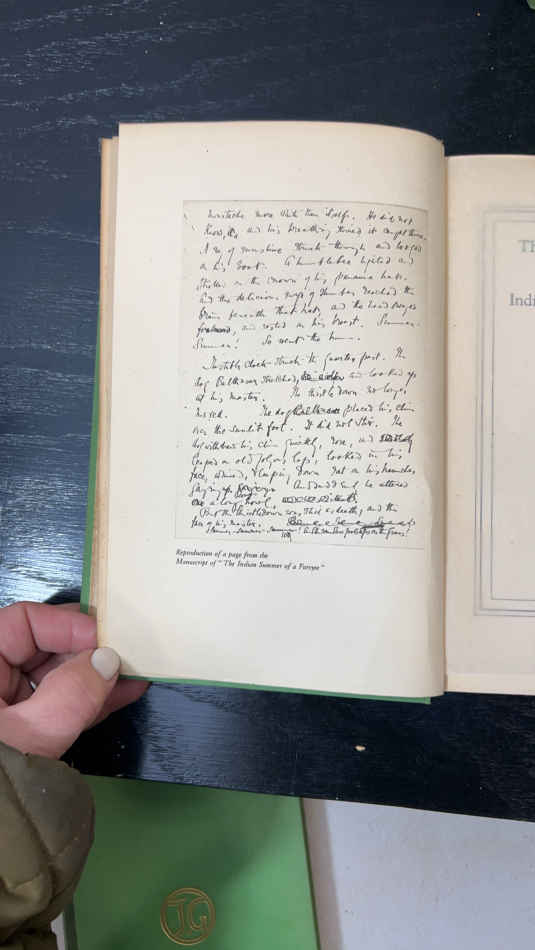 moustache more white than itself. He did not
know, and his breathing stirred it caught there.
A ray of sunshine struck through and lodged
on his boot. A humble-bee lighted and
strolled on the crown of his Panama hat.
And the delicious surge of slumber reached the
brain beneath that hat, and the head swayed
forward, and rested on his breast. Summer -
Summer! So went the hum.
The stable clock struck the quarter past. The
dog Balthasar stretched, and looked up
at his master. The thistledown no longer
moved. The dog placed his chin
over the sunlit foot. It did not stir. The
dog withdrew his chin quickly, rose, and
leaped on old Jolyon's lap, looked in his
face, whined; leaping down sat on his haunches,
gazing up. And suddenly he uttered
a long, long howl.
But the thistledown was still as death, and the
face of his master.
Summer - summer - summer! The soundless footsteps on the grass!
Reproduction of a page from the
Manuscript of "The Indian Summer of a Forsyte"
TH
Indi
JG